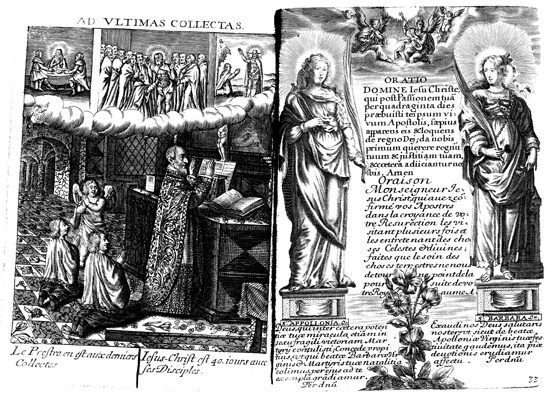 AD VLTIMAS COLLECTAS.
Le Prestre en est aux derniers
Collectes
Iesus-Christ est 40. iours avec
ses Disciples.
ORATIO
DOMINE Iesu Christe,
qui post Passionem tuã
per quadraginta dies
præbuisti te ipsum vi-
vum Apostolis, sæpius
apparens eis & loquens
de regno Dei; da nobis
primum querere regnũ
tuum & justitiam tuam,
& cœtera adiiciantur no
bis. Amen
Oraison
Monseigneur Ie-
sus Christ qui auez co
firmé vos Apostres
dans la croyance de vo-
tre Resurection les vi-
sitant plusieurs fois et
les entretenant des cho-
ses Celestes & divines;
faites que le soin des
choses terrestres ne nous
detourne point de la
poursuite de vo
tre Royaume A.
S. APPOLLONIA.
Deus qui inter cœtera poten-
tiæ tuæ miracula, etiam in
sexu fragili victoriam Mar-
tyry contulisti; Concede propi
tius, ut qui beatæ Barbaræ Vir
ginis & Martyris tuæ natalitia
colimus per ejus ad te
exempla gradiamur.
Per dnũ
S. BARBARA.
Exaudi nos Deus salutaris
noster ut sicut de beatæ
Apolloniæ Virginis tuæ fes
tivitate gaudemus, ita piæ
devotionis erudiamur
affectu. Per dnũ
33